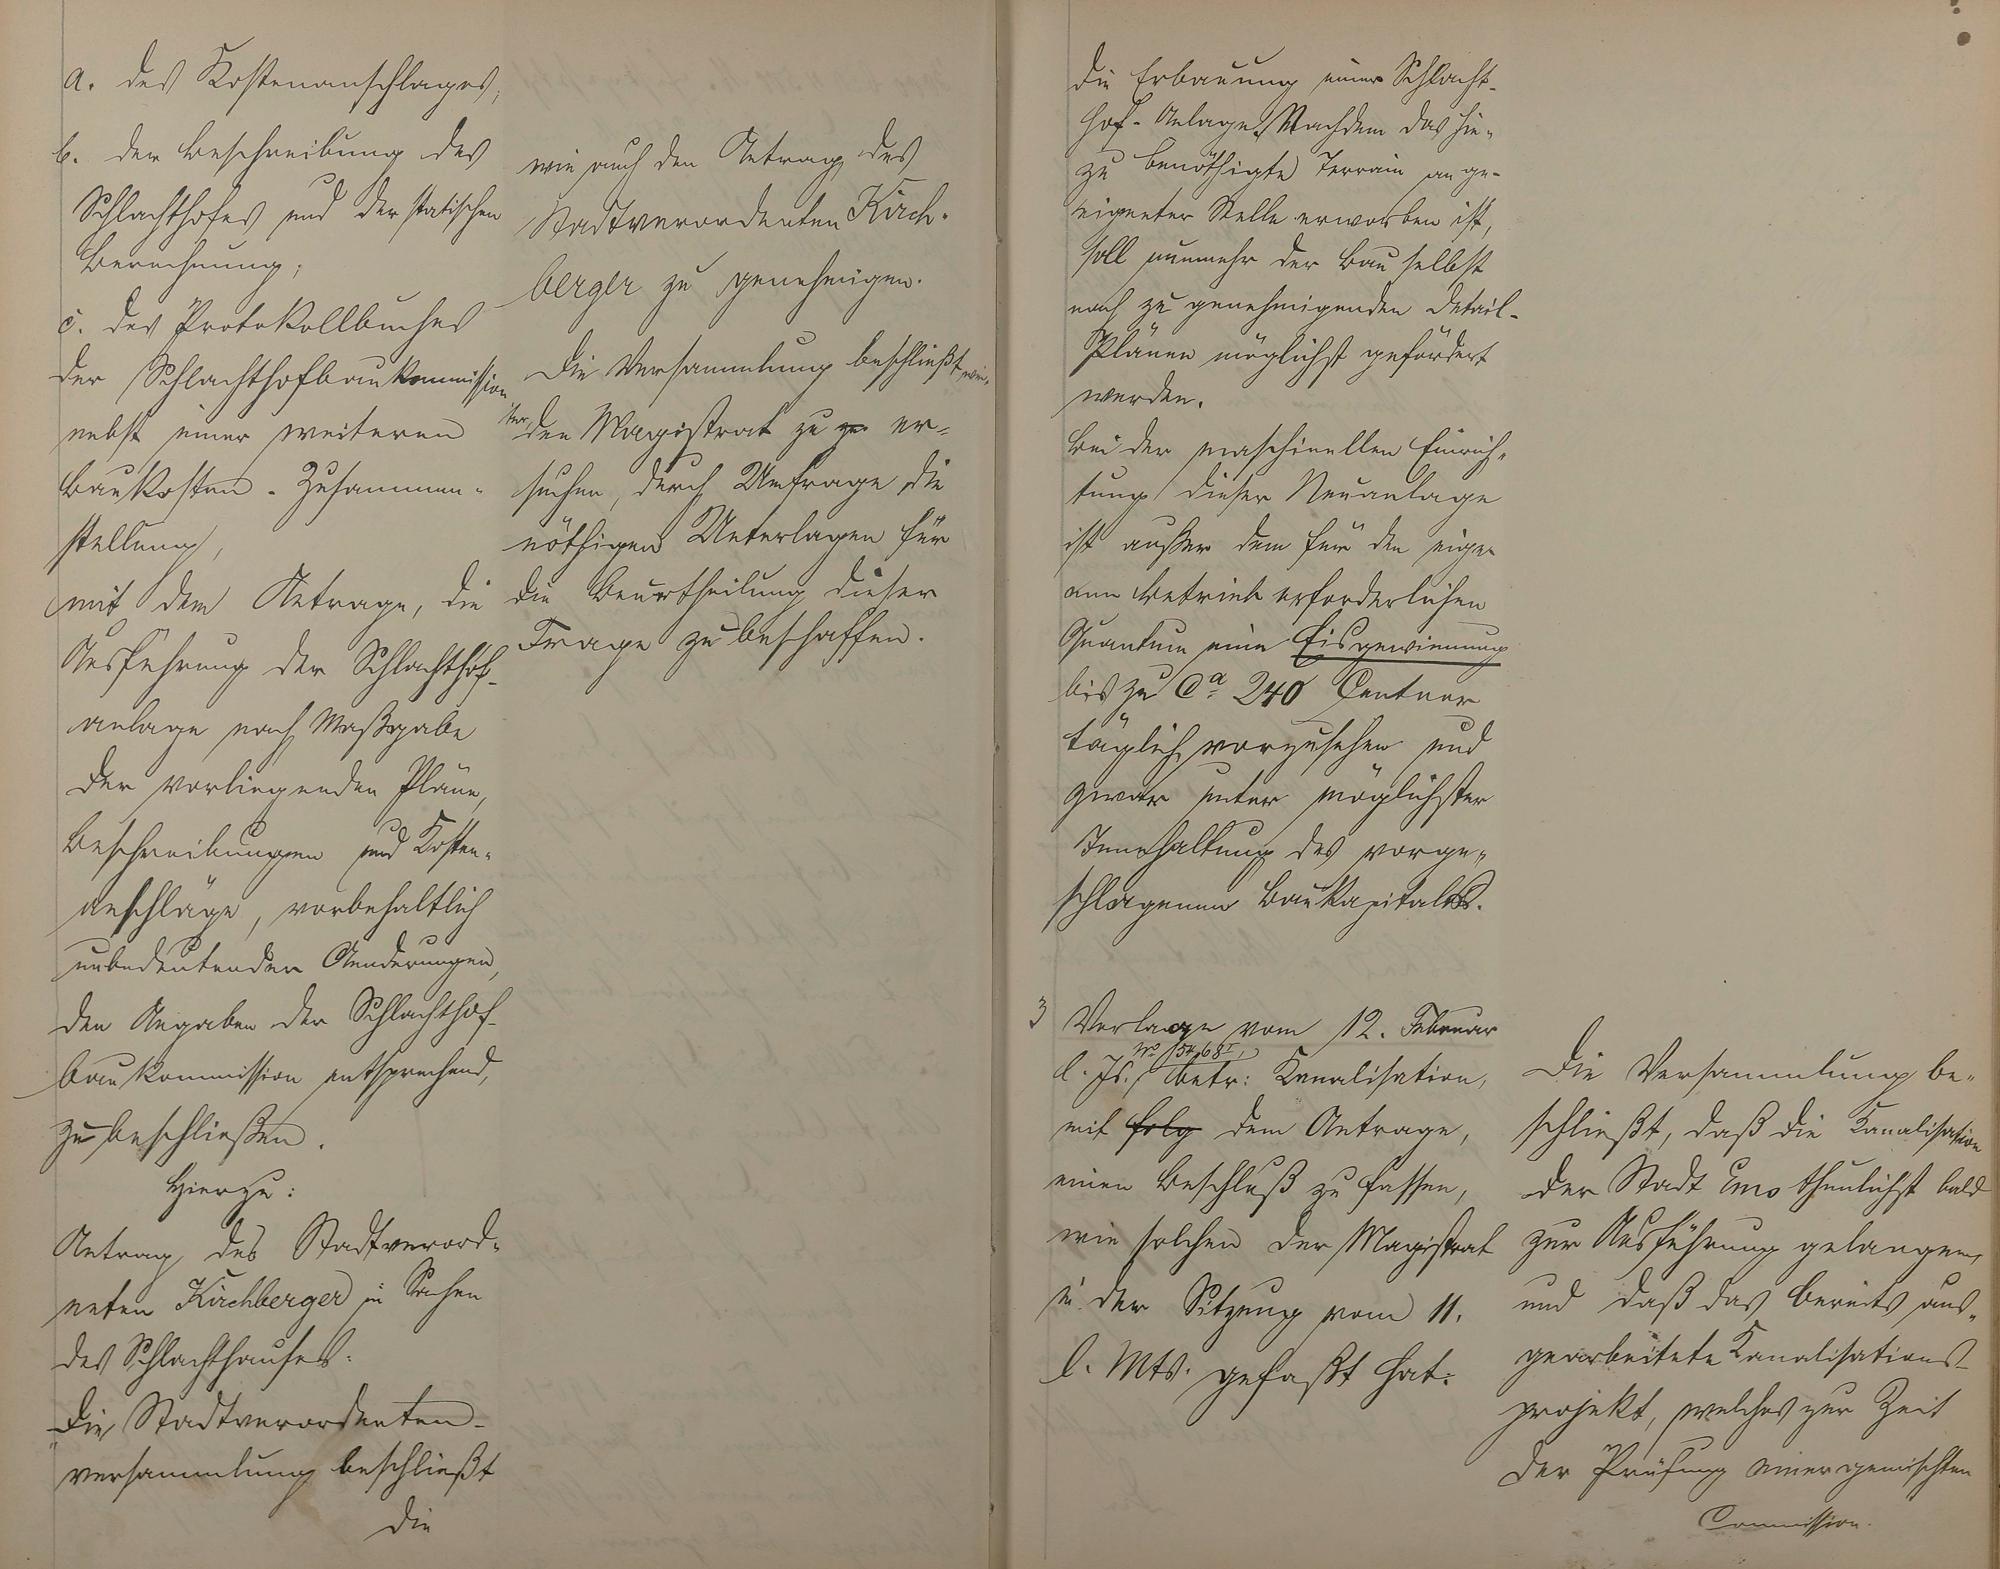 a. des Kostenanschlages,
b. der Beschreibung des
Schlachthofes und der statischen
Berechnung,
c. des Protokollbuches
der Schlachthofbaukommission
nebst einer weiteren
Baukosten-Zusammen-
stellung,
mit dem Antrage, die
Ausführung der Schlachthof-
anlage nach Maßgabe
der vorliegenden Pläne,
Beschreibungen und Kosten-
anschläge, vorbehaltlich
unbedeutender Aenderungen,
den Angaben der Schlachthof-
baukommission entsprechend,
zu beschließen.
Hierzu:
Antrag des Stadtverord-
neten Kirchberger in Sachen
des Schlachthauses:
„Die Stadtverordneten-
versammlung beschließt
die
wie auch den Antrag des
Stadtverordneten Kirch-
berger zu genehmigen.
Die Versammlung beschließt wei-
ter, den Magistrat zu zu er-
suchen, durch Umfrage die
nöthigen Unterlagen für
die Beurtheilung dieser
Frage zu beschaffen.
die Erbauung einer Schlacht-
hof-Anlage. Nachdem das hie-
zu benöthigte Terrain an ge-
eigneter Stelle erworben ist,
soll nunmehr der Bau selbst
nach zu genehmigenden Detail-
Plänen möglichst gefördert
werden.
Bei der maschinellen Einrich-
tung dieser Neuanlage
ist außer dem für den eige-
nen Betrieb erforderlichen
Quantum eine Eisgewinnung
bis zu Ca 240 Centner
täglich vorzusehen und
zwar unter möglichster
Innehaltung des vorge-
schlagenen Baukapitales.
3 Vorlage vom 12. Februar
No 15468 I,
l. Js., betr: Kanalisation,
mit folg dem Antrage,
einen Beschluß zu fassen,
wie solchen der Magistrat
in der Sitzung vom 11.
l. Mts. gefaßt hat.
Die Versammlung be-
schließt, daß die Kanalisation
der Stadt Ems thunlichst bald
zur Ausführung gelangen,
und daß das bereits aus-
gearbeitete Kanalisations-
projekt, welches zur Zeit
der Prüfung einer gemischten
Commission